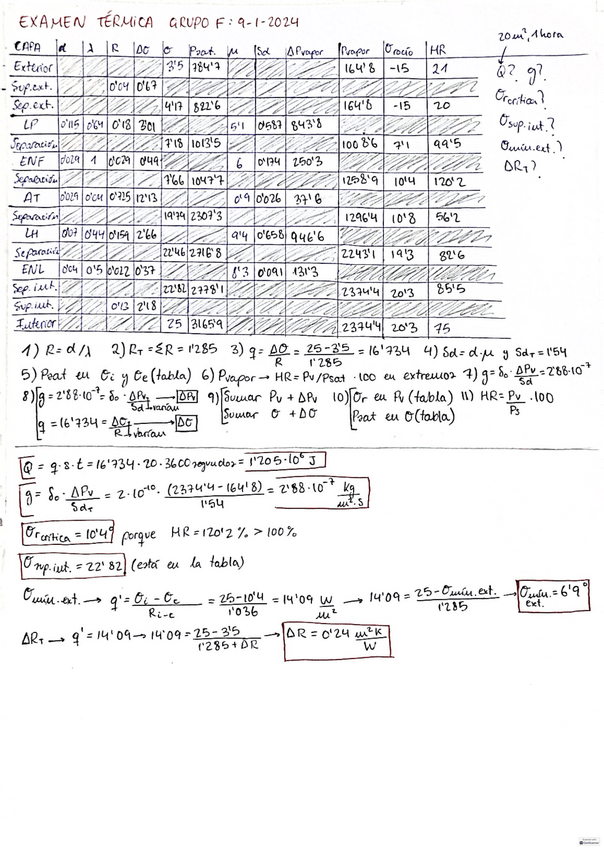 EXAMEN TÉRMICA GRUPO F: 9-1-2024
20m², 1 hora
CAPA d λ R Δθ θ Psat. μ Sd ΔPvapor Pvapor θrocío HR
Exterior 3'5 784'7 164'8 -15 21
Sup.ext. 0'04 0'67
Sep.ext. 4'17 822'6 164'8 -15 20
LP 0'115 0'64 0'18 3'01 5'1 0'587 843'8
Separación 7'18 1013'5 1008'6 7'1 99'5
ENF 0'029 1 0'029 0'49 6 0'174 250'3
Separación 7'66 1047'7 1258'9 10'4 120'2
AT 0'029 0'04 0'725 12'13 0'9 0'026 37'6
Separación 19'79 2307'3 1296'4 10'8 56'2
LH 0'07 0'44 0'159 2'66 9'4 0'658 946'6
Separación 22'46 2716'8 2243'1 19'3 82'6
ENL 0'04 0'5 0'022 0'37 8'3 0'091 131'3
Sep. int. 22'82 2778'1 2374'4 20'3 85'5
Sup.int. 0'13 2'18
Interior 25 3165'9 2374'4 20'3 75
Q? g?
θrcrítica?
θsup.int.?
θmín.ext.?
ΔRT?
1) R = d/λ 2) RT = ΣR = 1'285 3) q = Δθ/R = 25-3'5/1'285 = 16'734 4) Sd = d·μ y SdT = 1'54
5) Psat en θi y θe (tabla) 6) Pvapor → HR = Pv/Psat · 100 en extremos 7) g = δ₀ · ΔPv/Sd = 2'88·10⁻⁷
8) g = 2'88·10⁻⁷ = δ₀ · ΔPv/Sd → varían → ΔPv 9) Sumar Pv + ΔPv 10) θr en Pv (tabla) 11) HR = Pv/Ps · 100
q = 16'734 = Δθ/R → varían → Δθ Sumar θ + Δθ Psat en θ (tabla)
Q = q·s·t = 16'734 · 20 · 3600 segundos = 1'205·10⁶ J
g = δ₀ · ΔPv/SdT = 2·10⁻¹⁰ · (2374'4 - 164'8)/1'54 = 2'88·10⁻⁷ kg/m²·s
θrcrítica = 10'4° porque HR = 120'2 % > 100%
θsup.int. = 22'82 (está en la tabla)
θmín.ext. → q' = θi - θc/Ri-c = 25-10'4/1'036 = 14'09 W/m² → 14'09 = 25 - θmín.ext./1'285 → θmín.ext. = 6'9°
ΔRT → q' = 14'09 → 14'09 = 25-3'5/1'285+ΔR → ΔR = 0'24 m²K/W